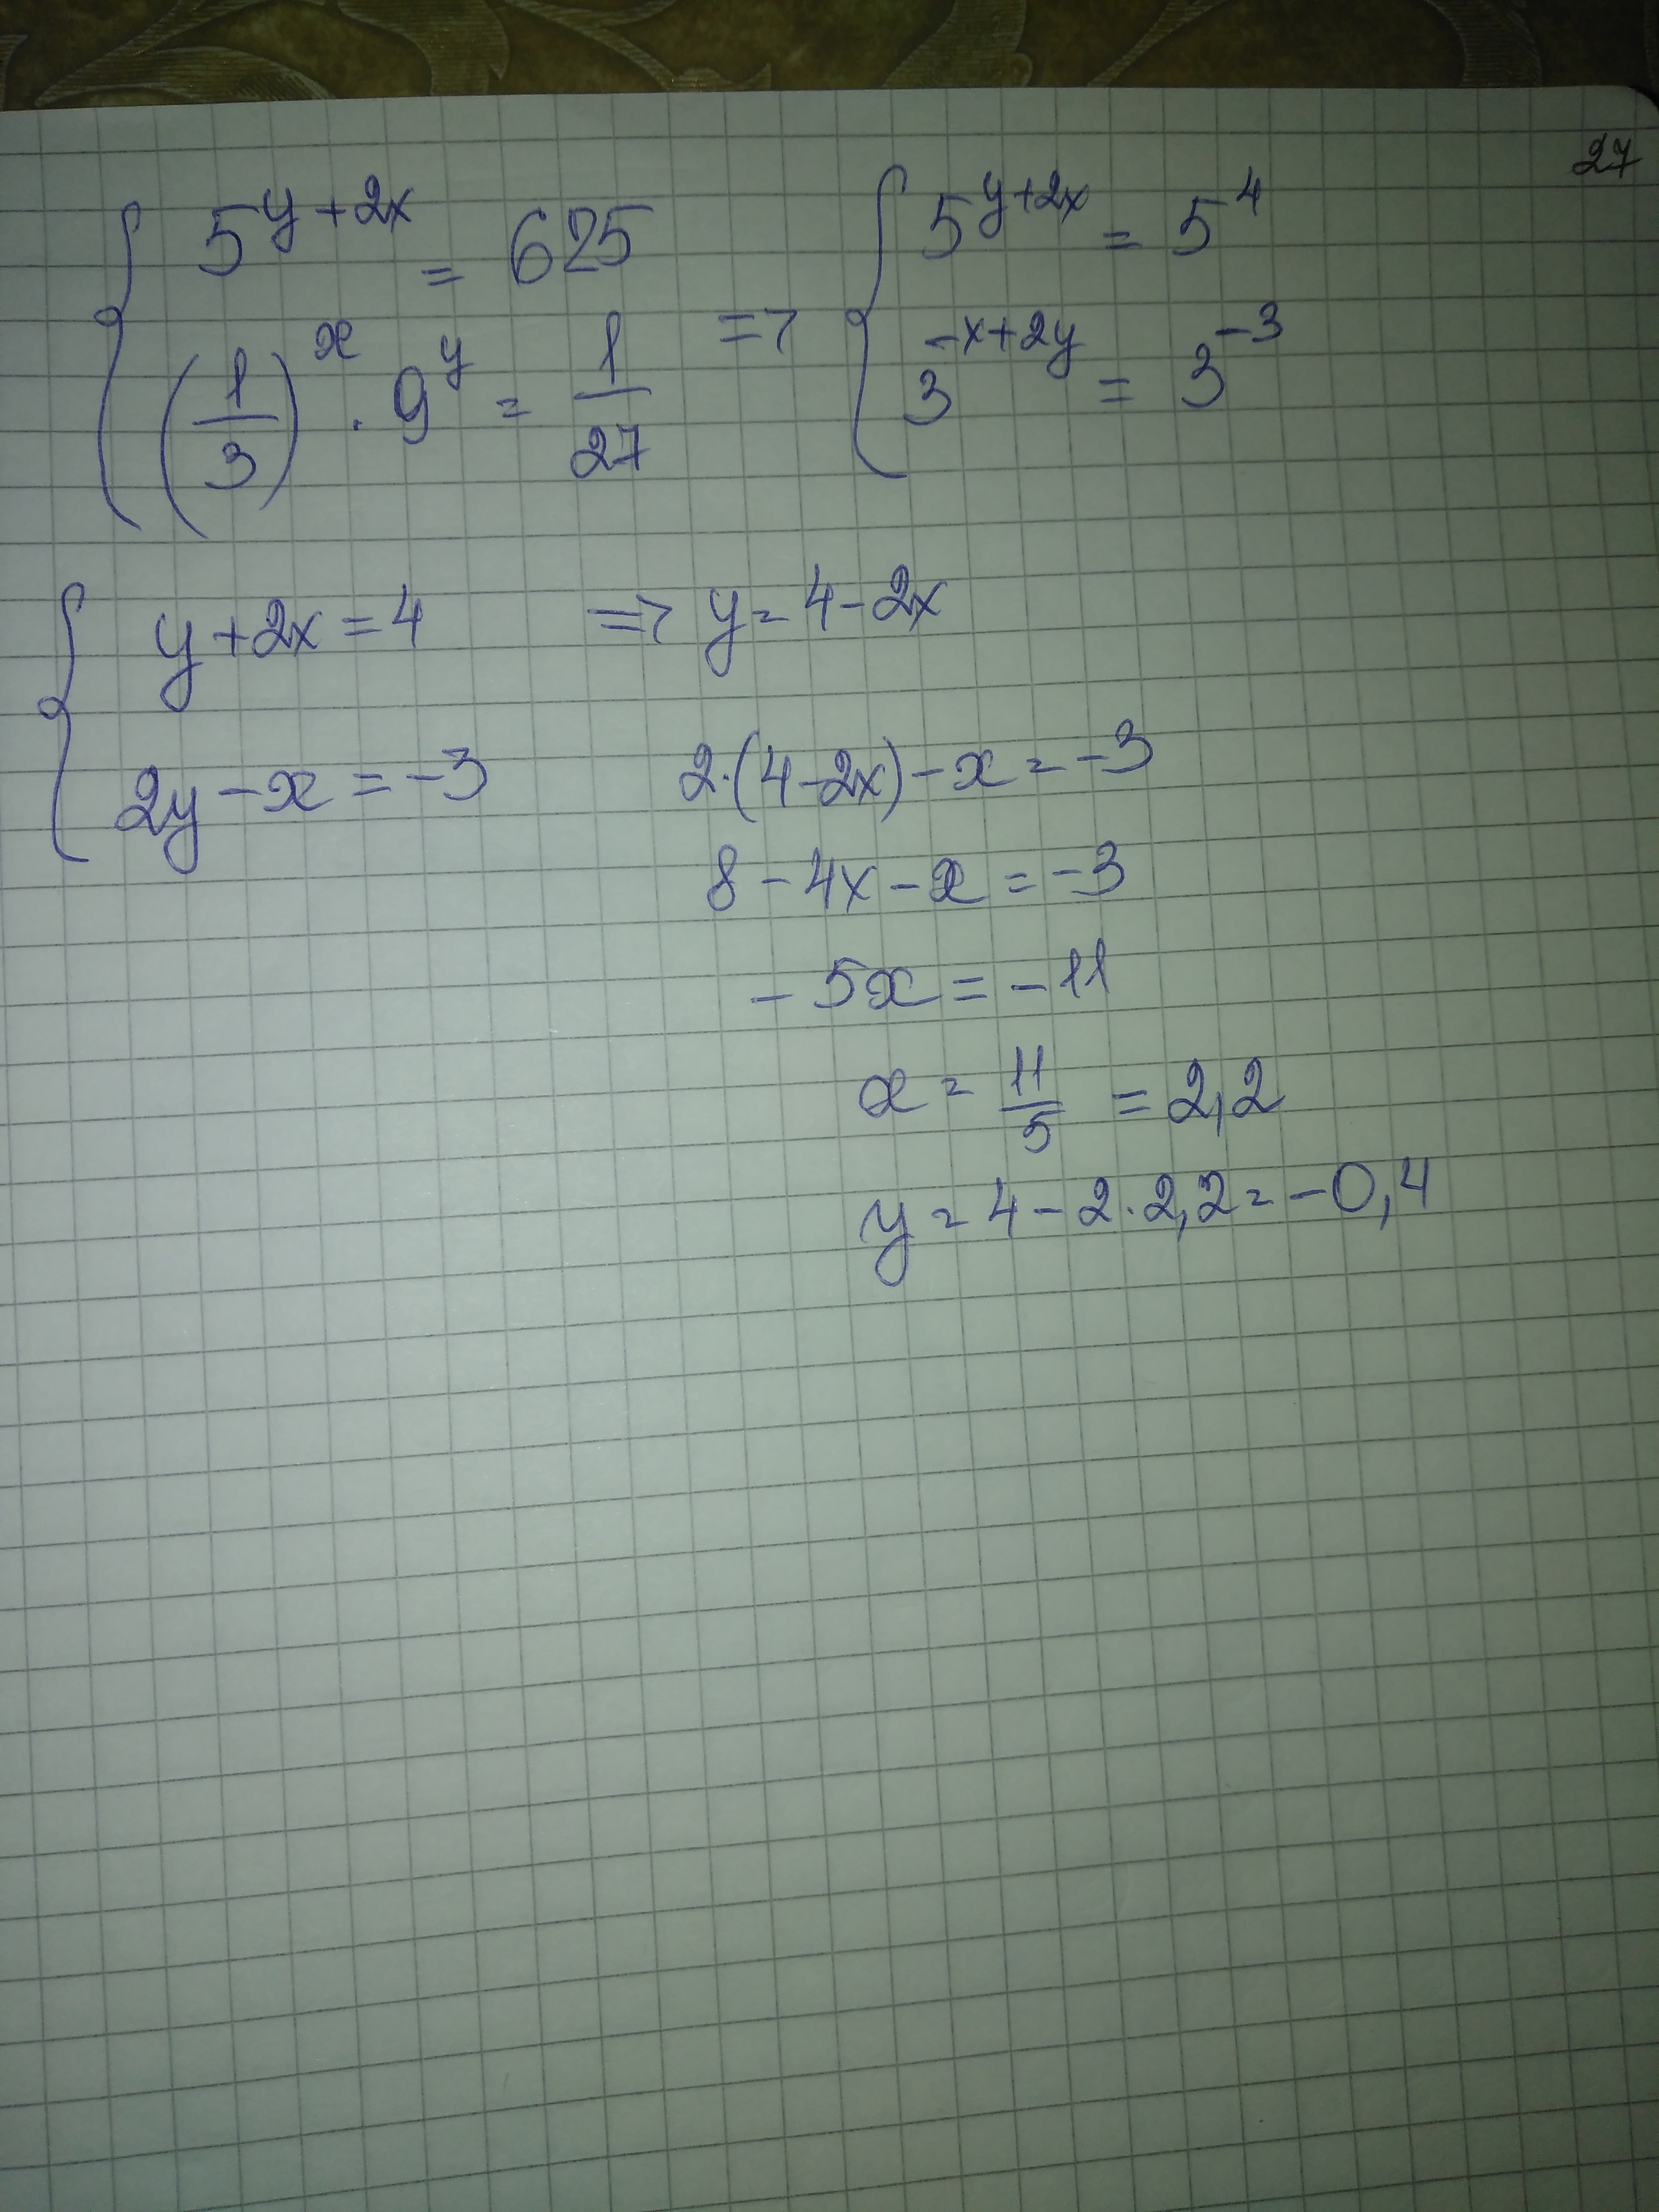 27
{ 5^{y+2x} = 625
(1/3)^x · 9^y = 1/27 =>
{ 5^{y+2x} = 5^4
3^{-x+2y} = 3^{-3}
{ y+2x=4 => y=4-2x
2y-x=-3
2·(4-2x)-x=-3
8-4x-x=-3
-5x=-11
x=11/5=2,2
y=4-2·2,2=-0,4